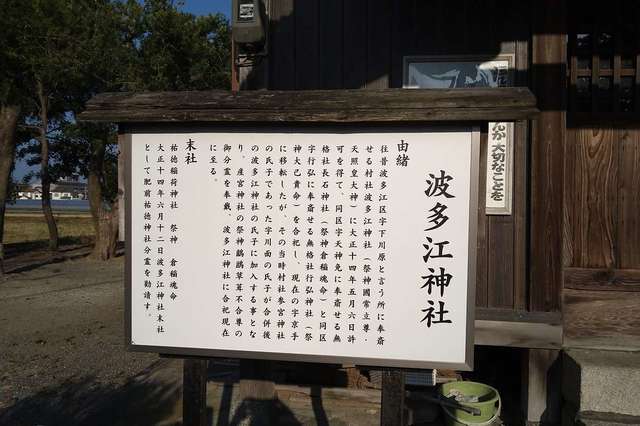 波多江神社
由緒
往昔波多江区字下川原と言う所に奉斎
せる村社波多江神社(祭神國常立尊・
天照皇大神)に大正十四年五月六日許
可を得て、同区字天神免に奉斎せる無
格社長石神社(祭神倉稲魂命)と同区
字行弘に奉斎せる無格社行弘神社(祭
神大己貴命)を合祀し、現在の字京手
に移転したが、その当時村社参宮神社
の氏子であった字川面の氏子が合併後
の波多江神社の氏子に加入する事とな
り、産宮神社の祭神鸕鷀草葺不合尊の
御分霊を奉戴、波多江神社に合祀現在
に至る。
末社
祐徳稲荷神社 祭神 倉稲魂命
大正十四年六月十二日波多江神社末社
として肥前祐徳神社分霊を勧請す。
んが大切なことを